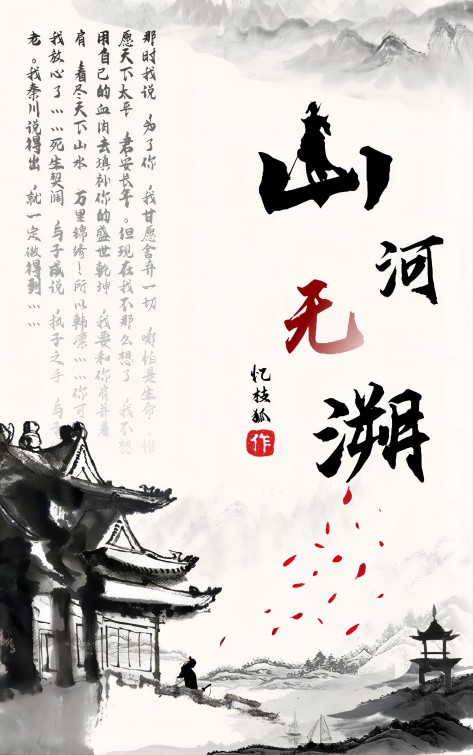 山河无溯
忆枝狐
作
那时我说 为了你 我甘愿舍弃一切 哪怕是生命 惟
愿天下太平 君安长年。但现在我不那么想了 我不想
用自己的血肉去填补你的盛世乾坤 我要和你肩并着
肩 看尽天下山水 万里锦绣！所以韩凛……你可
我放心了……死生契阔 与子成说 执子之手 与子
老。我秦川说得出 就一定做得到……